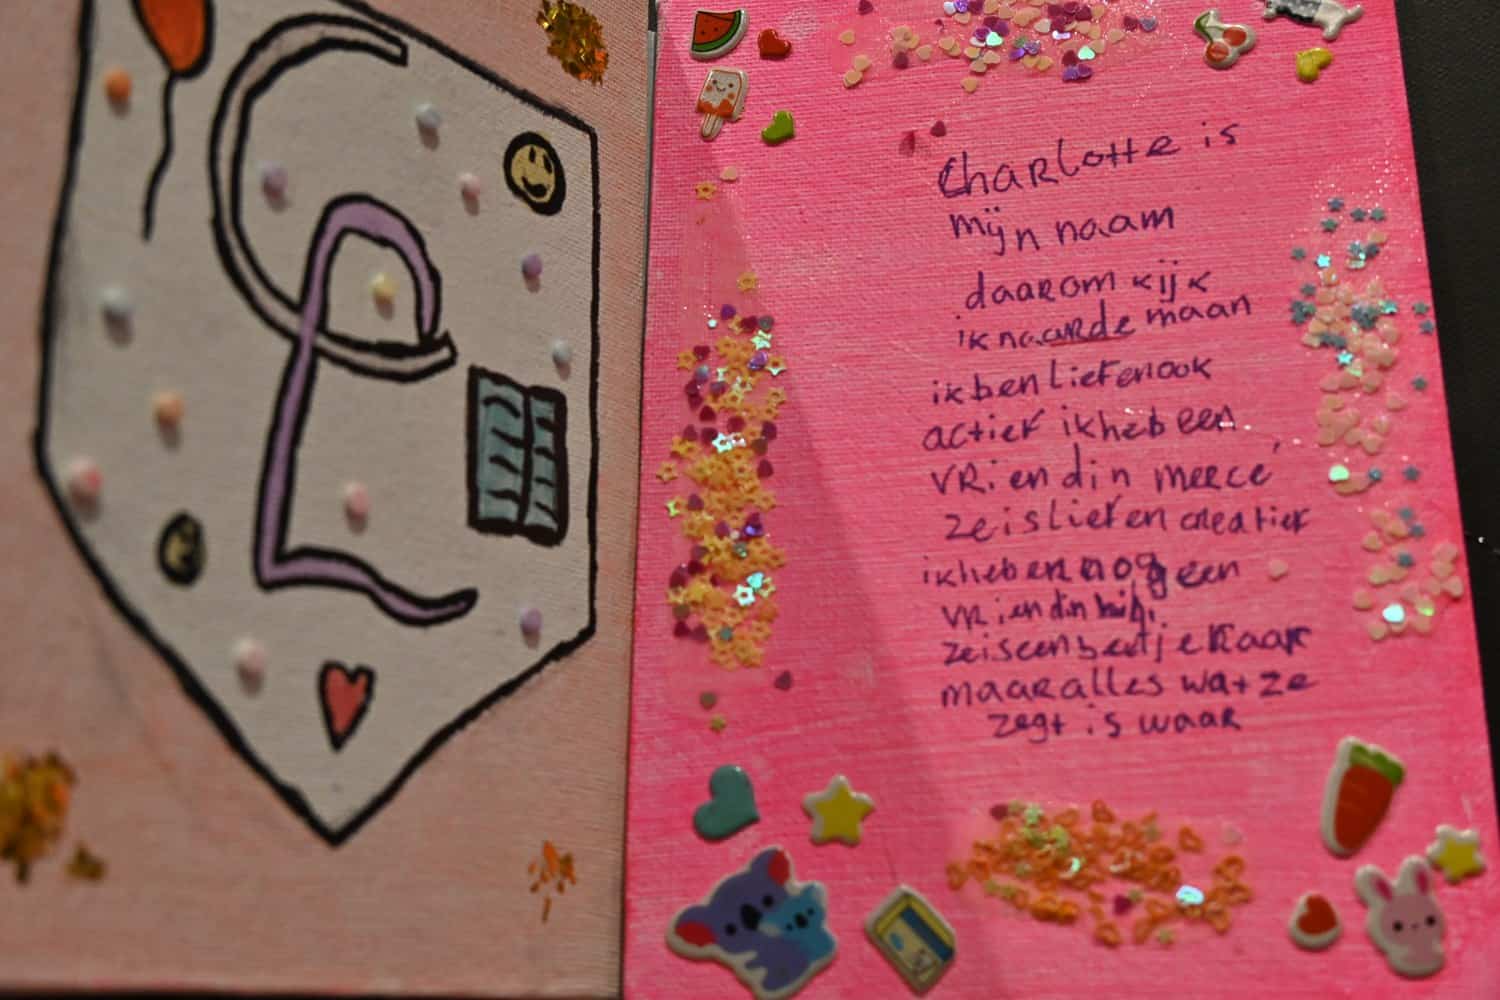 Charlotte is
mijn naam
daarom kijk
ik naarde maan
ik ben lief en ook
actief ik heb een
vriendin merce'
ze is lief en creatief
ik heb en nog een
vriendin
ze is een beetje raar
maar alles wat ze
zegt is waar